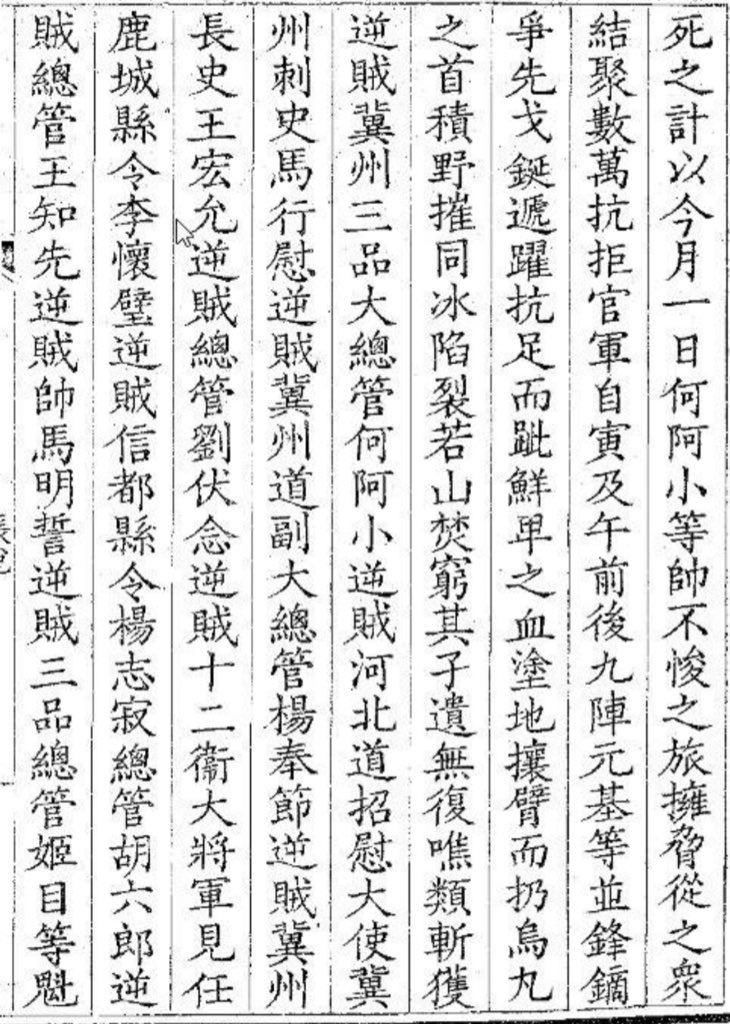 死之計以今月一日何阿小等帥不悛之旅擁脅從之衆
結聚數萬抗拒官軍自寅及午前後九陣元基等並鋒鏑
爭先戈鋋遞躍抗足而跐鮮卑之血塗地攘臂而扔烏丸
之首積野摧同冰陷裂若山焚窮其子遺無復噍類斬獲
逆賊冀州三品大總管何阿小逆賊河北道招慰大使冀
州刺史馬行慰逆賊冀州道副大總管楊奉節逆賊冀州
長史王宏允逆賊總管劉伏念逆賊十二衞大將軍見任
鹿城縣令李懷璧逆賊信都縣令楊志寂總管胡六郎逆
賊總管王知先逆賊帥馬明誓逆賊三品總管姬目等魁